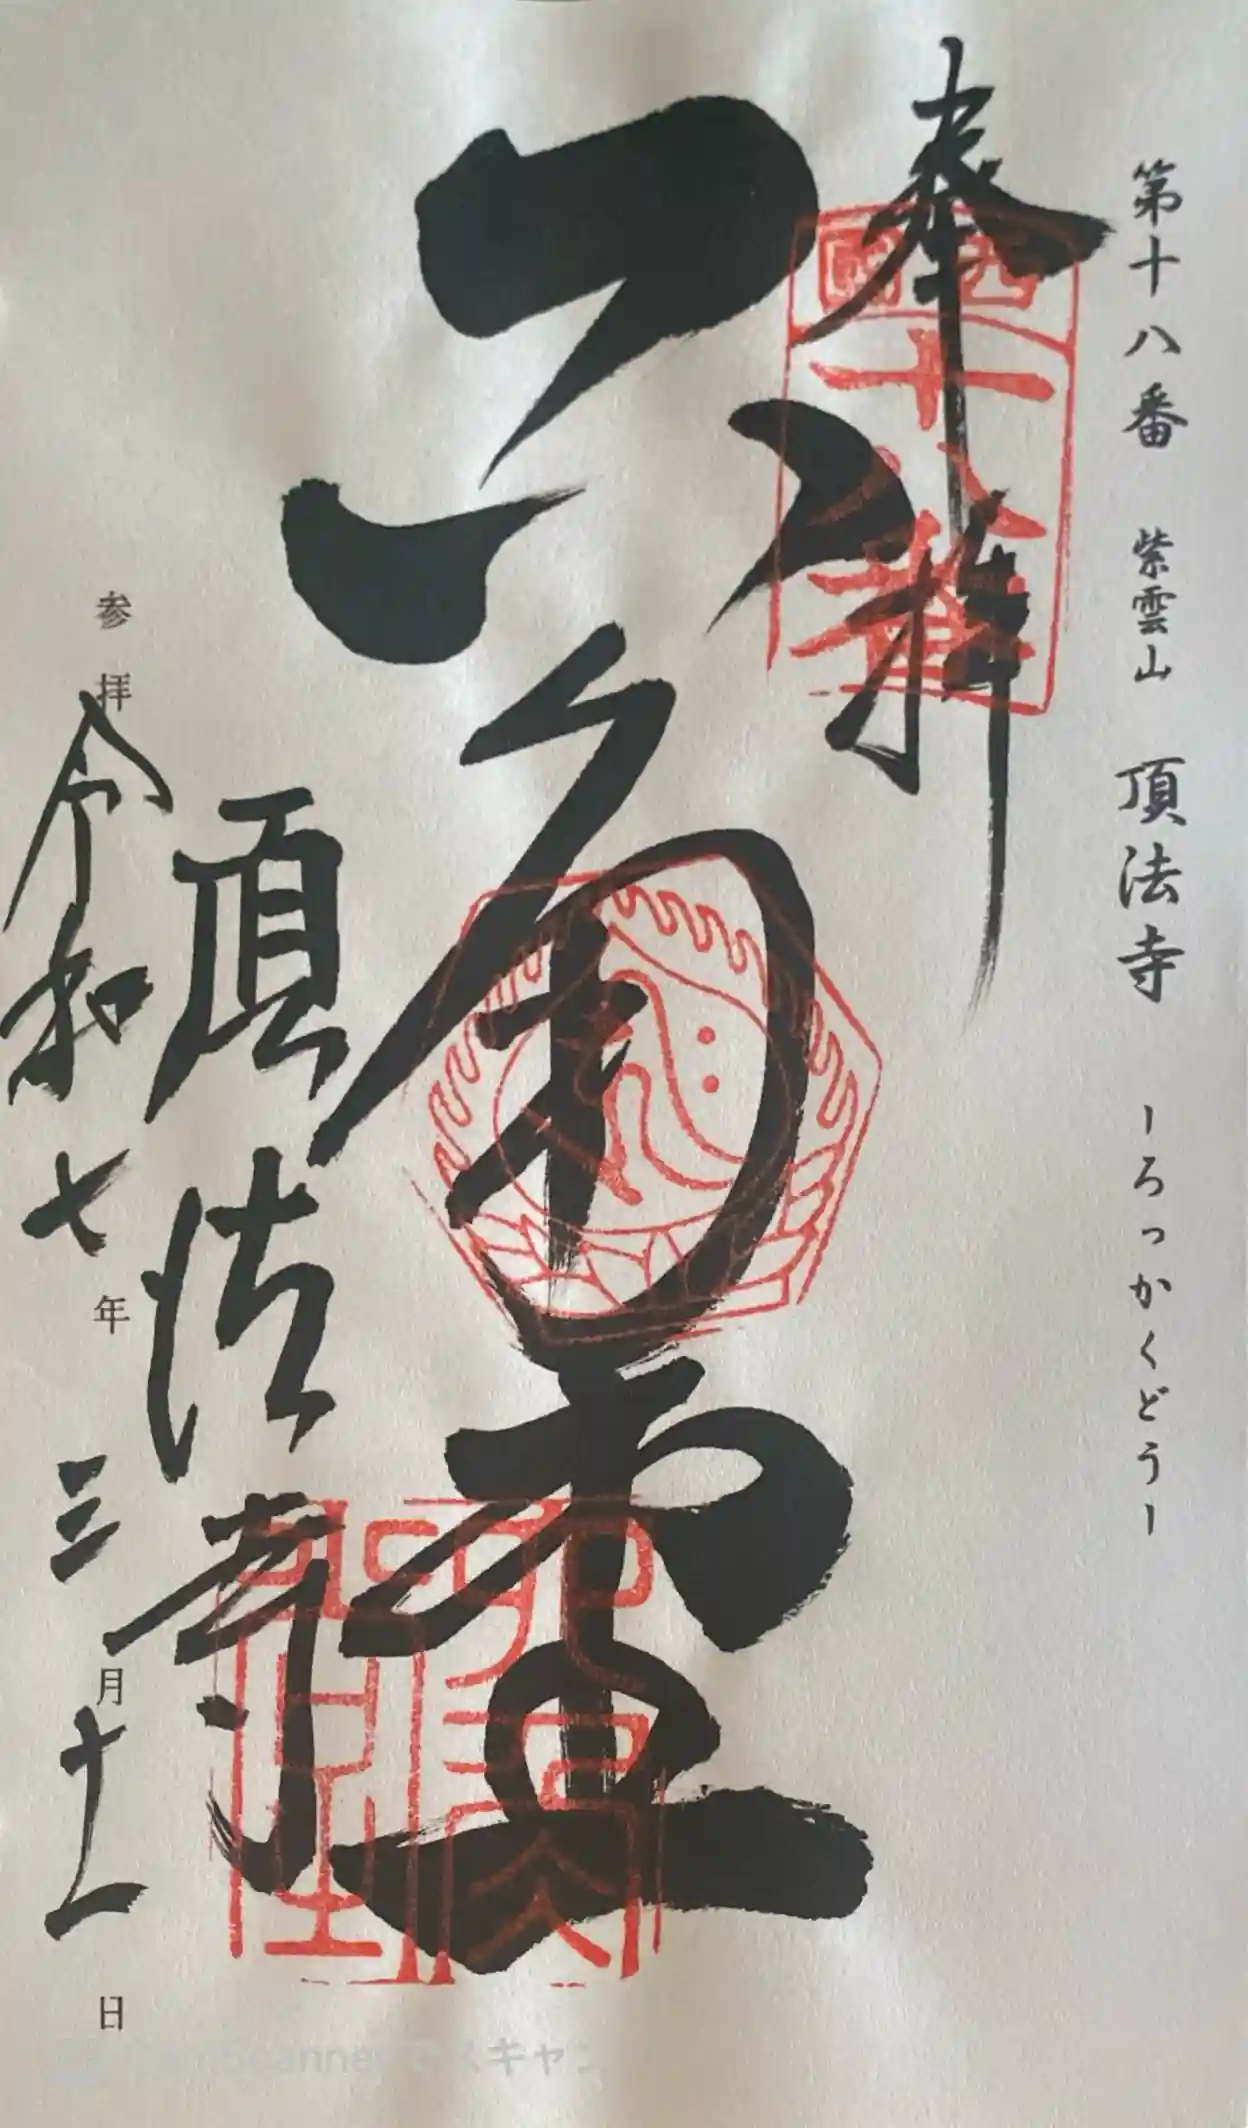 第十八番 紫雲山 頂法寺 ーろっかくどうー
奉拝
西國
十八番
六角堂
頂法寺
参拝 令和七年三月十一日
CamScannerでスキャン